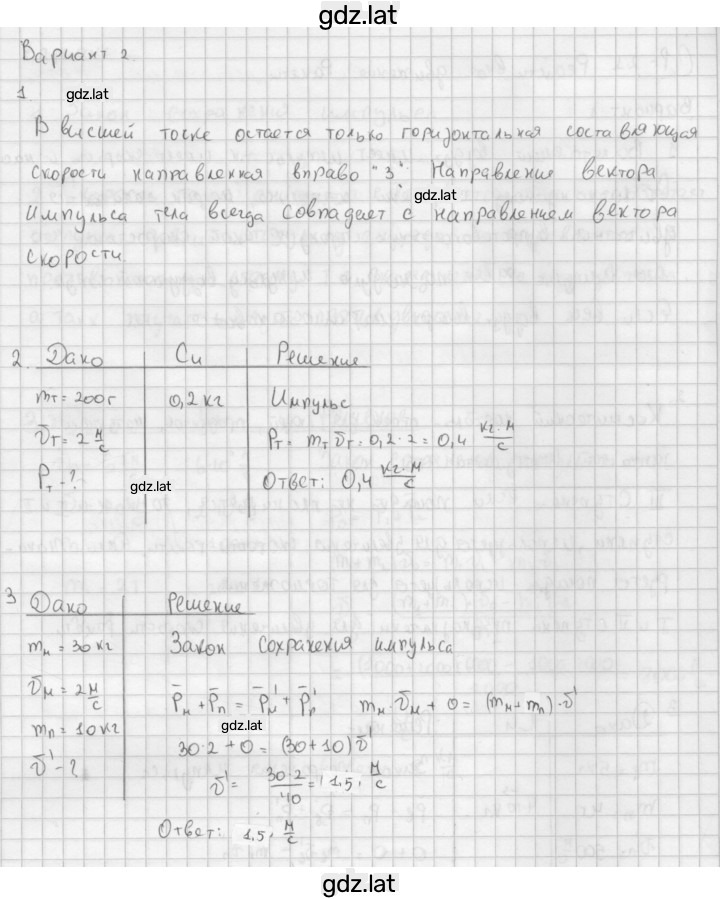 gdz.lat
Вариант 2.
1.
gdz.lat
В высшей точке остается только горизонтальная составляющая
скорости направленная вправо "3". Направление вектора
gdz.lat
импульса тела всегда совпадает с направлением вектора
скорости.
2. Дано | Си | Решение
mт = 200г | 0,2 кг | Импульс
v̄т = 2 м/с | Pт = mт v̄т = 0,2 · 2 = 0,4 кг·м/с
Pт - ? | Ответ: 0,4 кг·м/с
gdz.lat
3 Дано | Решение
mм = 30 кг | Закон сохранения импульса
v̄м = 2 м/с | P̄м + P̄п = P̄м' + P̄п' mм · v̄м + 0 = (mм + mп) · v̄'
gdz.lat
mп = 10 кг | 30 · 2 + 0 = (30 + 10) v̄'
v̄' - ? | v̄' = 30·2/40 = 1,5 · м/с
Ответ: 1,5 · м/с
gdz.lat